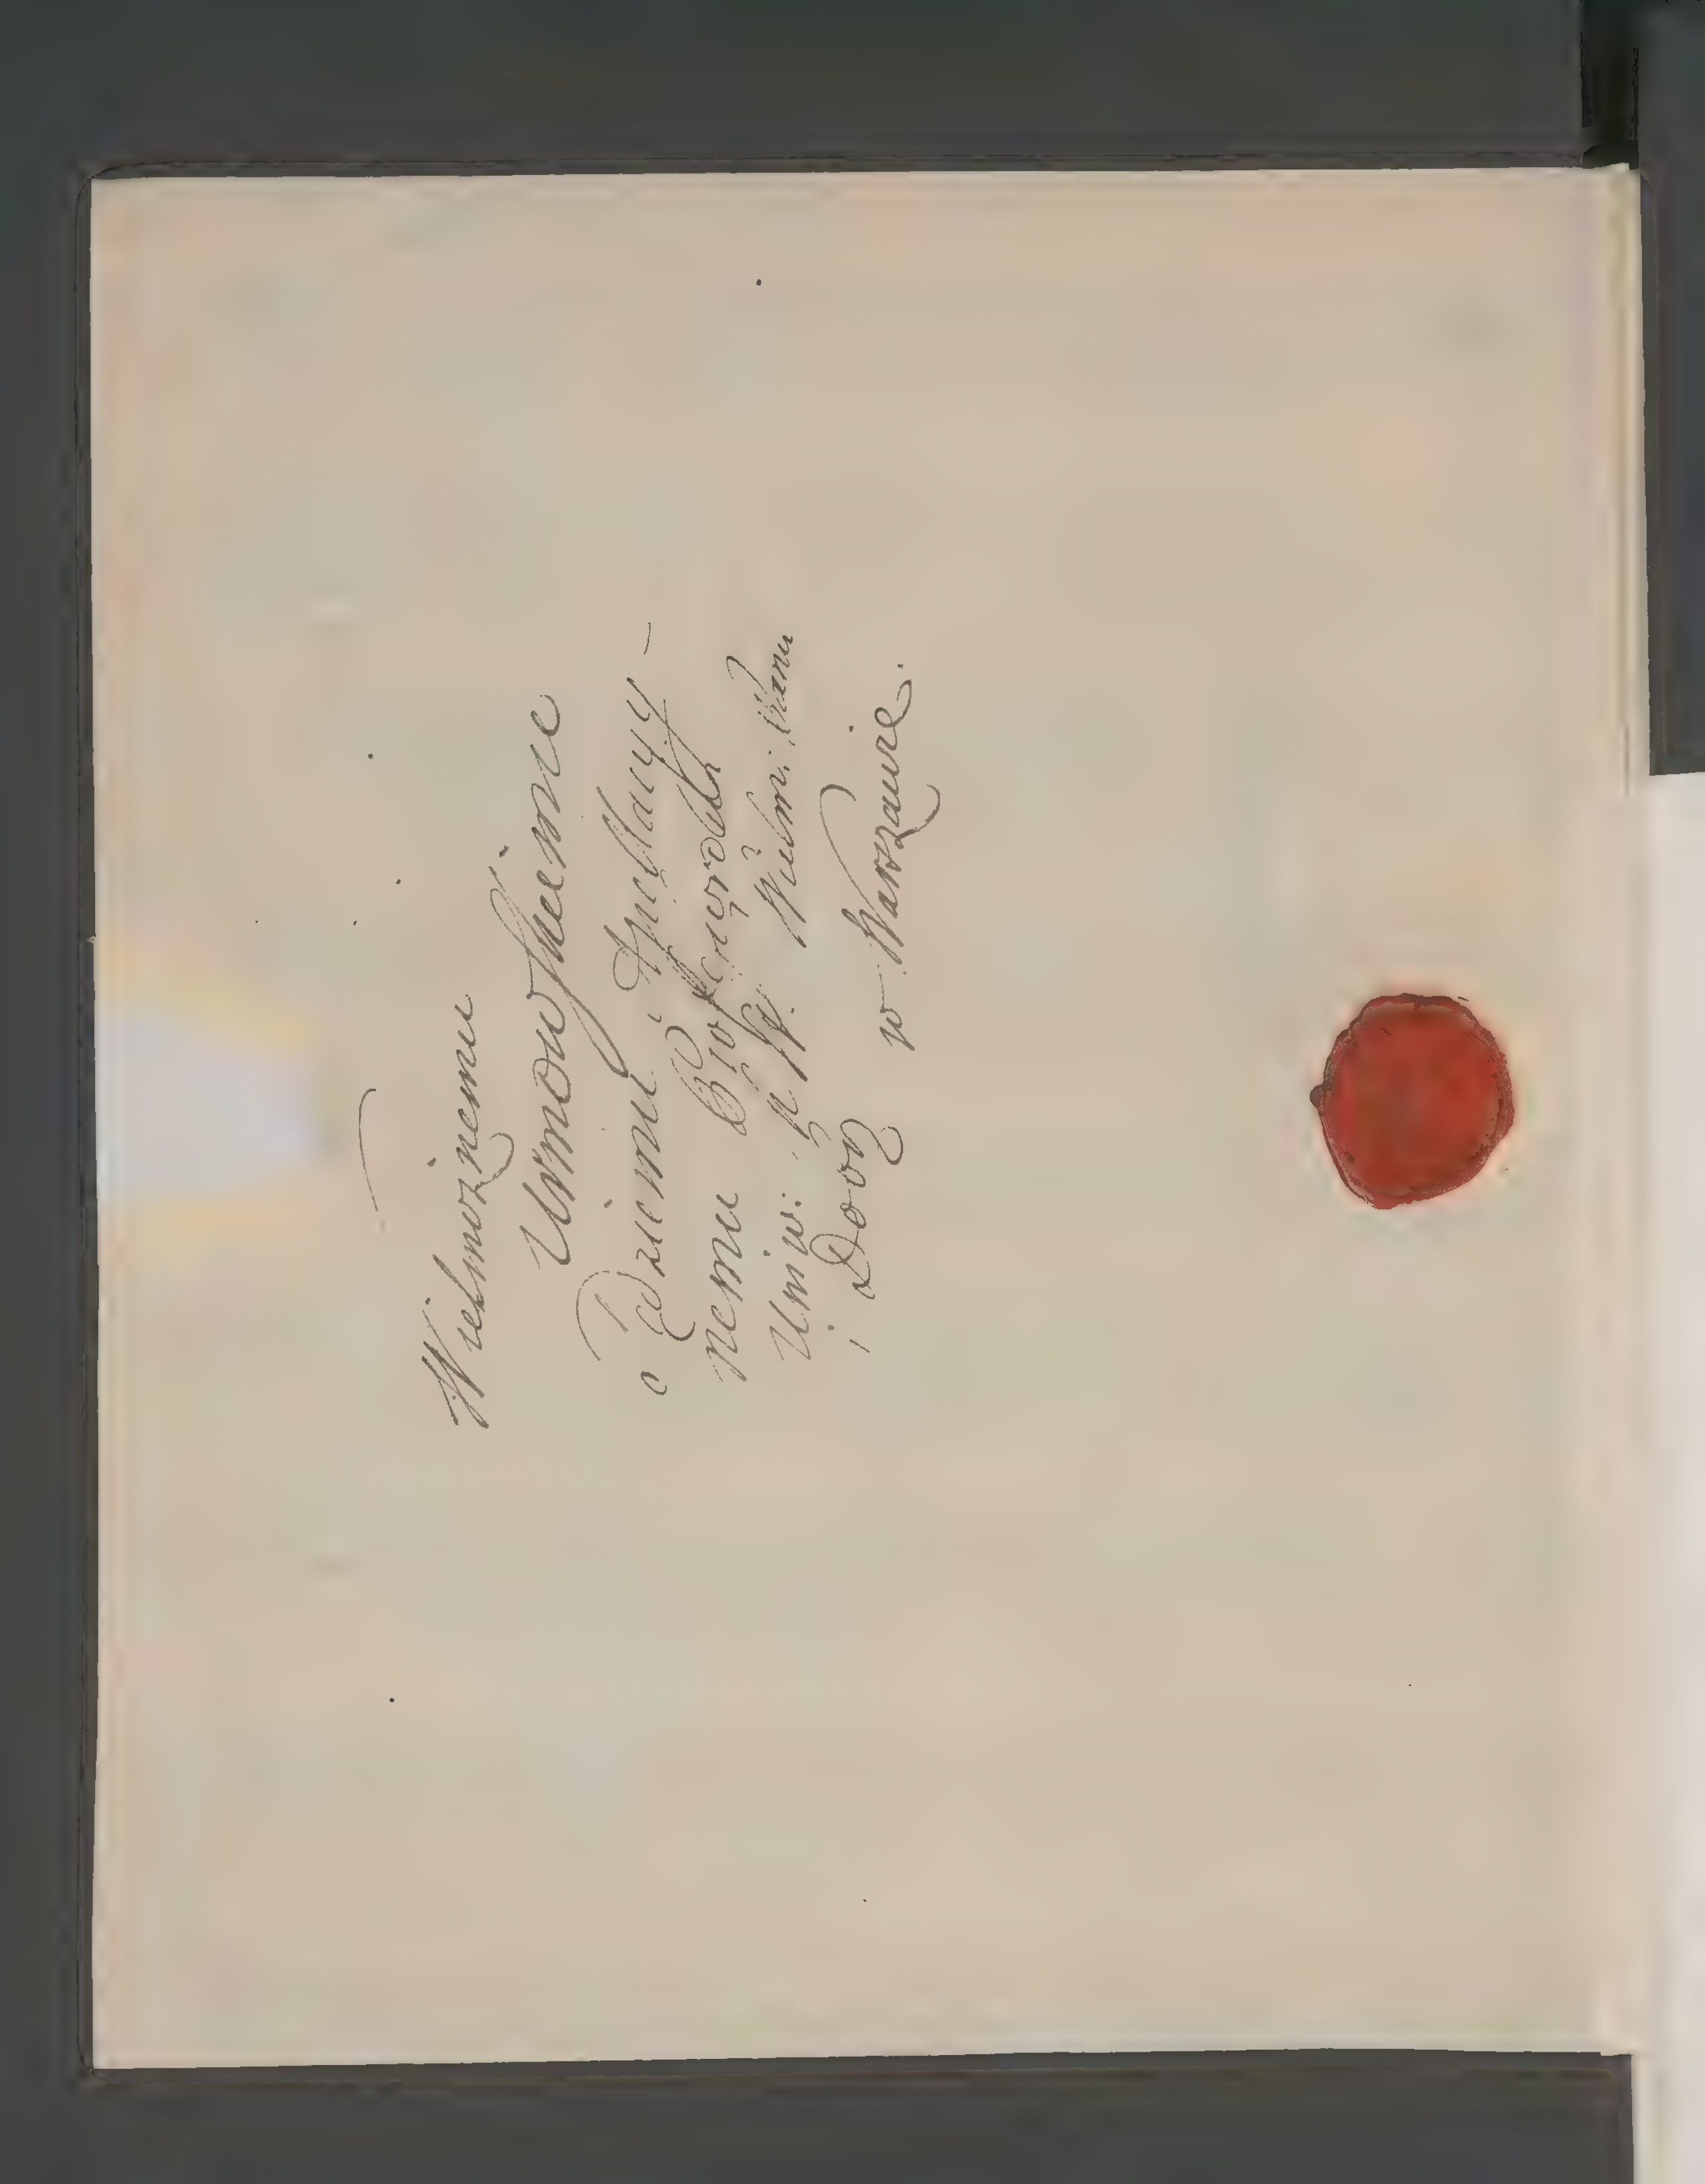 Wielmożnemu
Urmowskiemu
Sędziemu Apellacyi
nemu Professorowi
Uniw: K. W. Wielm: Panu
i Dobr:
w Warszawie.